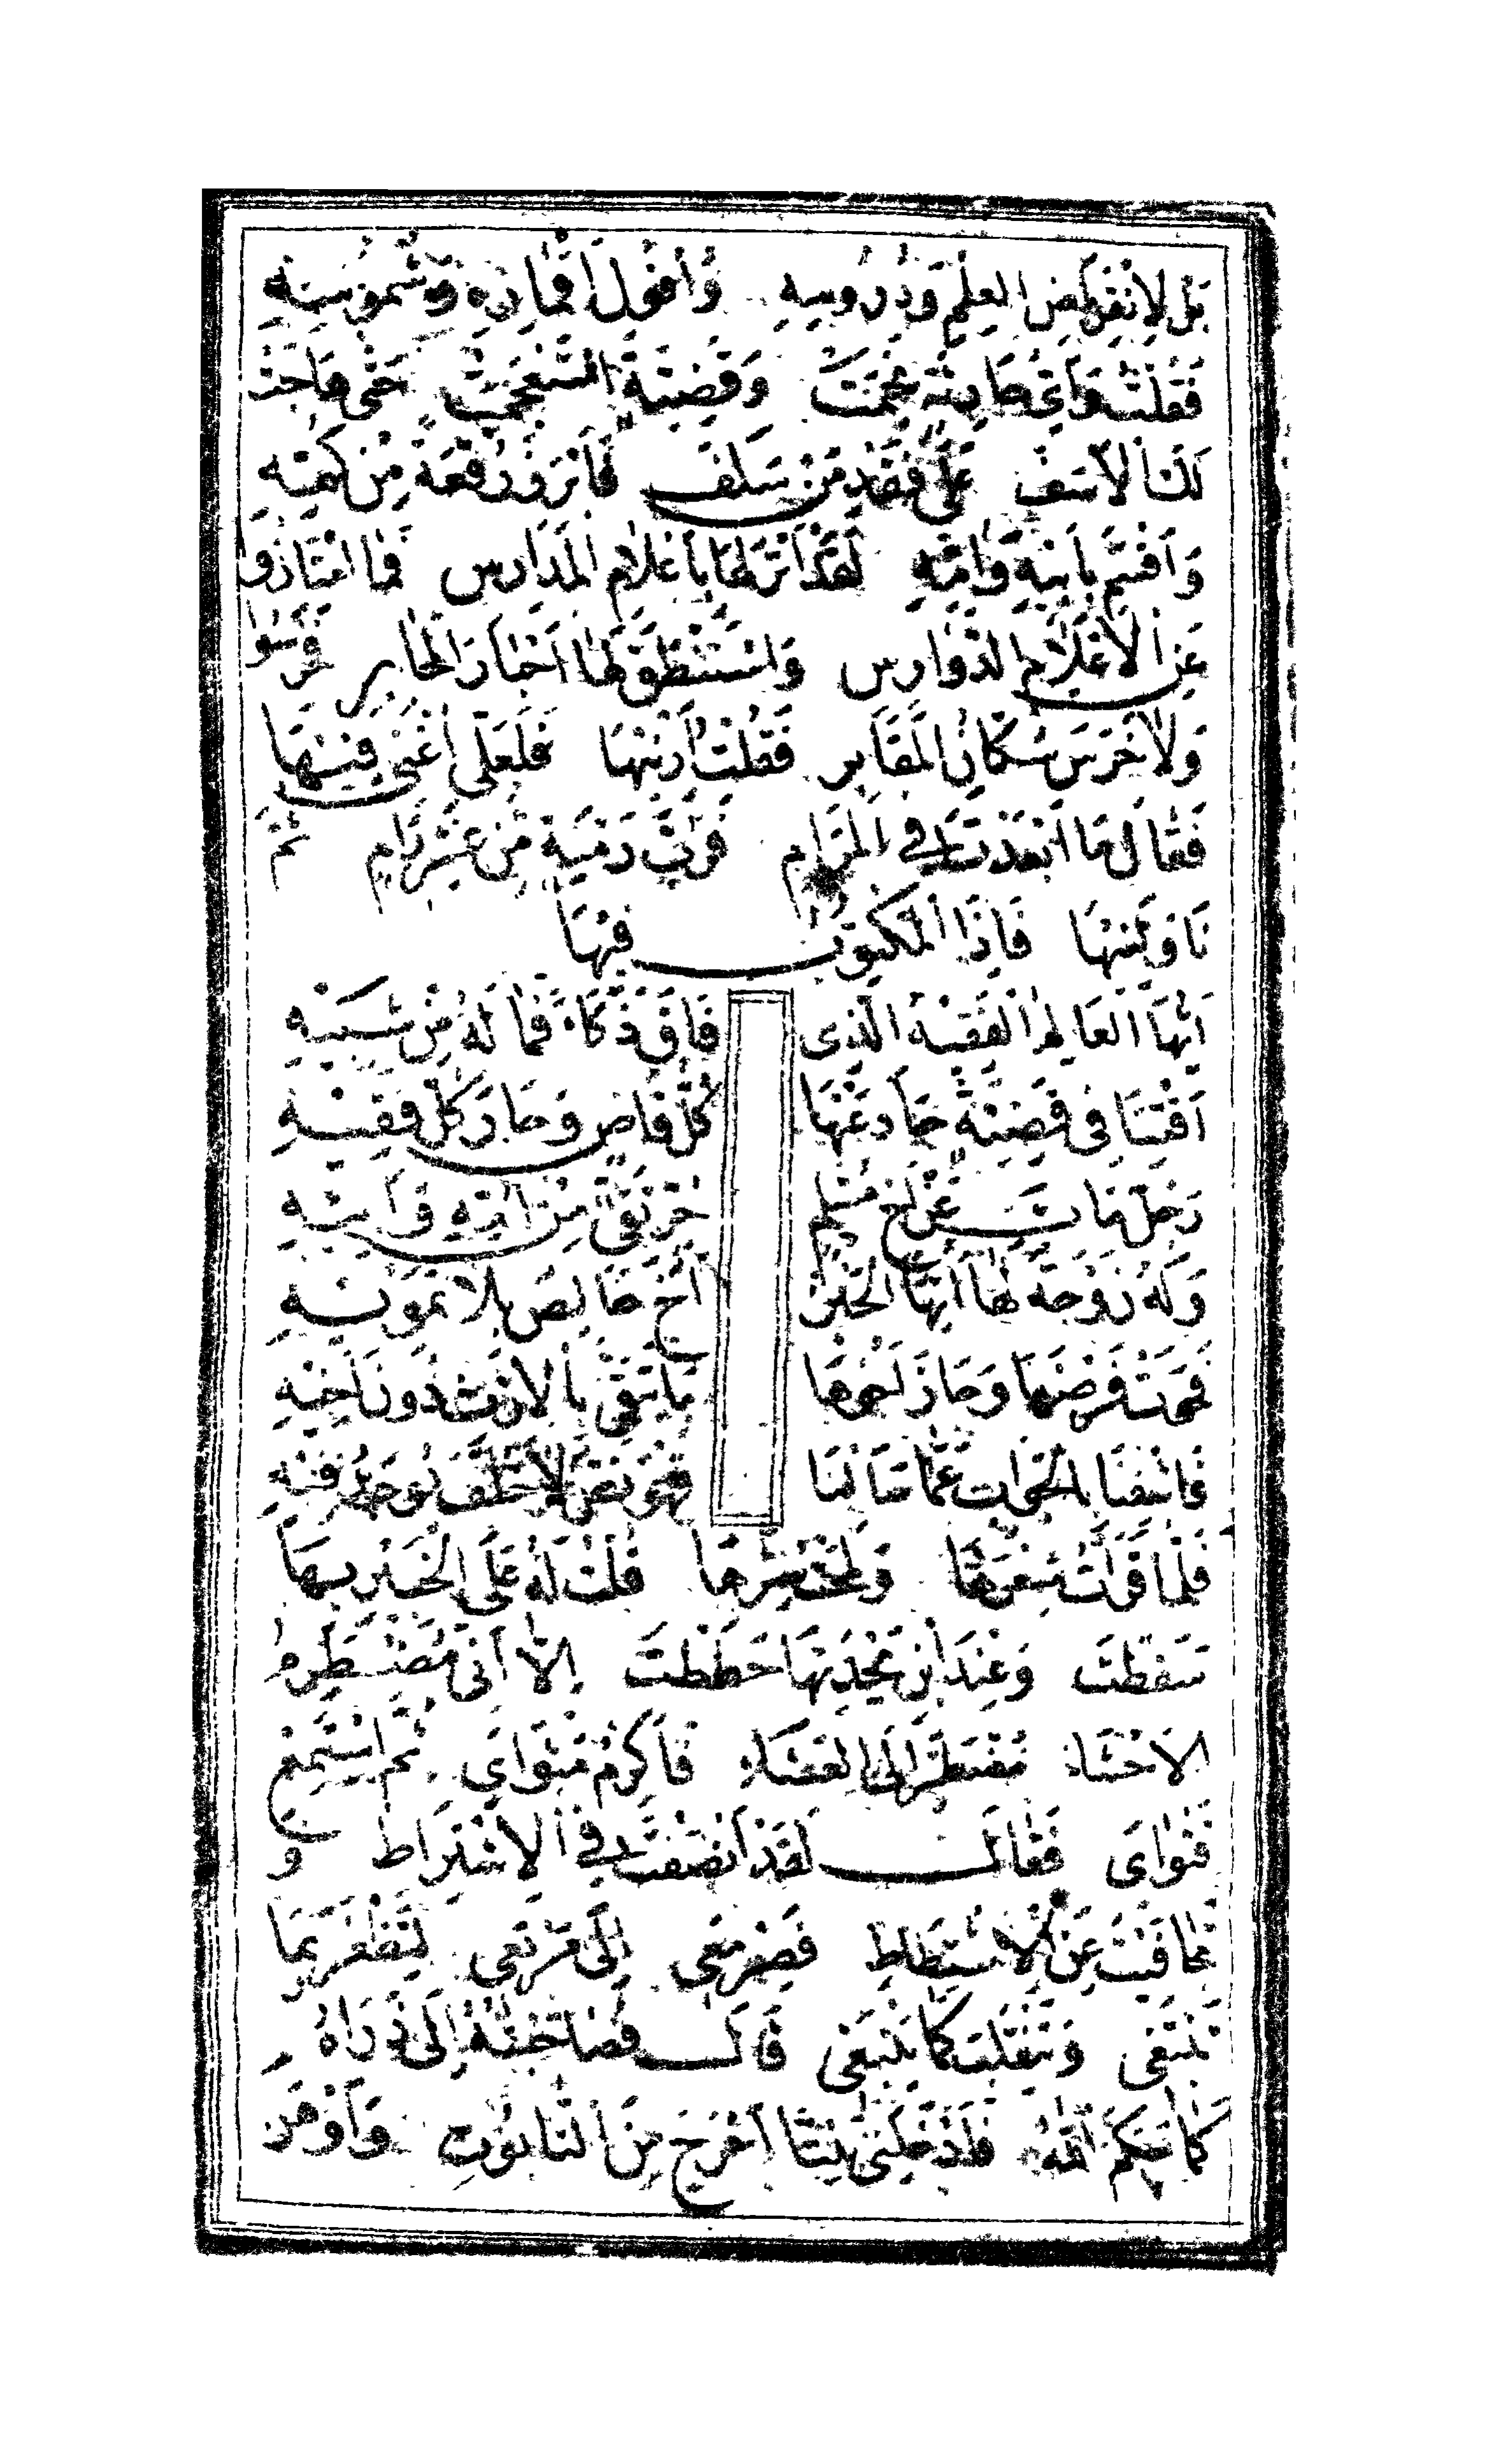 بَلْ لِانْقِرَاضِ الْعِلْمِ وَدُرُوسِهِ وَأُفُولِ أَقْمَارِهِ وَشُمُوسِهِ
فَقُلْتُ وَأَيُّ حَادِثَةٍ نَجَمَتْ وَقَضِيَّةٍ اسْتَعْجَمَتْ حَتَّى هَاجَتْ
لَكَ الْأَسَفَ عَلَى فَقْدِ مَنْ سَلَفَ فَأَبْرَزَ رُقْعَةً مِنْ كُمِّهِ
وَأَقْسَمَ بِأَبِيهِ وَأُمِّهِ لَقَدْ أَنْزَلَهَا بِأَعْلَامِ الْمَدَارِسِ فَمَا امْتَازُوا
عَنِ الْأَعْلَامِ الدَّوَارِسِ وَاسْتَنْطَقَ لَهَا أَحْبَارَ الْمَحَابِرِ فَخَرِسُوا
وَلَا خَرَسَ سُكَّانِ الْمَقَابِرِ فَقُلْتُ أَرِنِيهَا فَلَعَلِّي أُغْنِي فِيهَا
فَقَالَ مَا أَبْعَدْتَ فِي الْمَرَامِ فَرُبَّ رَمْيَةٍ مِنْ غَيْرِ رَامٍ ثُمَّ
نَاوَلَنِيهَا فَإِذَا الْمَكْتُوبُ فِيهَا
أَيُّهَا الْعَالِمُ الْفَقِيهُ الَّذِي فَاقَ ذَكَاءً فَمَا لَهُ مِنْ شَبِيهِ
أَفْتِنَا فِي قَضِيَّةٍ حَادَ عَنْهَا كُلُّ قَاضٍ وَحَارَ كُلُّ فَقِيهِ
رَجُلٌ مَاتَ عَنْ أَخٍ مُسْلِمٍ حُرٍّ تَقِيٍّ مِنْ أُمِّهِ وَأَبِيهِ
وَلَهُ زَوْجَةٌ لَهَا أَيُّهَا الْحَبْرُ أَخٌ خَالِصٌ بِلَا تَمْوِيهِ
فَحَوَتْ فَرْضَهَا وَحَازَ أَخُوهَا مَا تَبَقَّى بِالْإِرْثِ دُونَ أَخِيهِ
فَاشْفِنَا بِالْجَوَابِ عَمَّا سَأَلْنَا فَهْوَ نَصٌّ لَا خُلْفَ يُوجَدُ فِيهِ
فَلَمَّا قَرَأْتُ شِعْرَهَا وَلَمَحْتُ سِرَّهَا قُلْتُ لَهُ عَلَى الْخَبِيرِ بِهَا
سَقَطْتَ وَعِنْدَ ابْنِ بَجْدَتِهَا حَطَطْتَ إِلَّا أَنِّي مُضْطَرِمُ
الْأَحْشَاءِ مُضْطَرٌّ إِلَى الْعَشَاءِ فَأَكْرِمْ مَثْوَايَ ثُمَّ اسْتَمِعْ
فَتْوَايَ فَقَالَ لَقَدْ أَنْصَفْتَ فِي الْاشْتِرَاطِ وَ
تَجَافَيْتَ عَنِ الْاشْتِطَاطِ فَصِرْ مَعِي إِلَى مَرْبَعِي لِتَظْفَرَ بِمَا
تَبْتَغِي وَتَنْقَلِبَ كَمَا يَنْبَغِي قَالَ فَصَاحَبْتُهُ إِلَى ذَرَاهُ
كَمَا حَكَمَ اللهُ فَأَدْخَلَنِي بَيْتًا أَحْرَجَ مِنَ التَّابُوتِ وَأَوْهَنَ